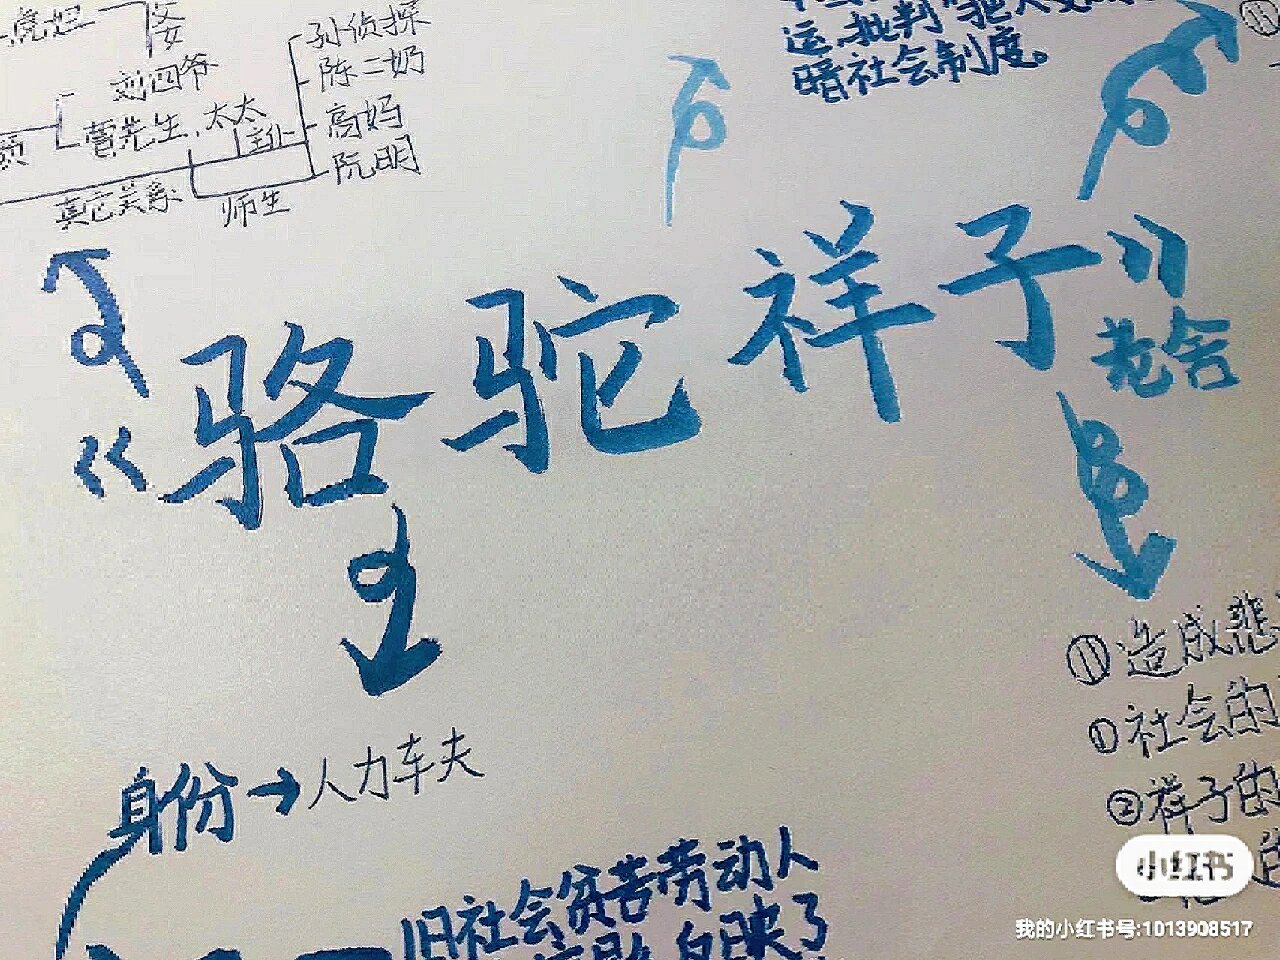 虎妞
孙侦探
刘四爷
陈二奶
曹先生
太太
主仆
高妈
阮明
其它关系
师生
运,批判
暗社会制度。
《骆驼祥子》
老舍
⑪造成悲
①社会的
②祥子的
身份→人力车夫
旧社会贫苦劳动人
映了
小红书
我的小红书号:1013908517